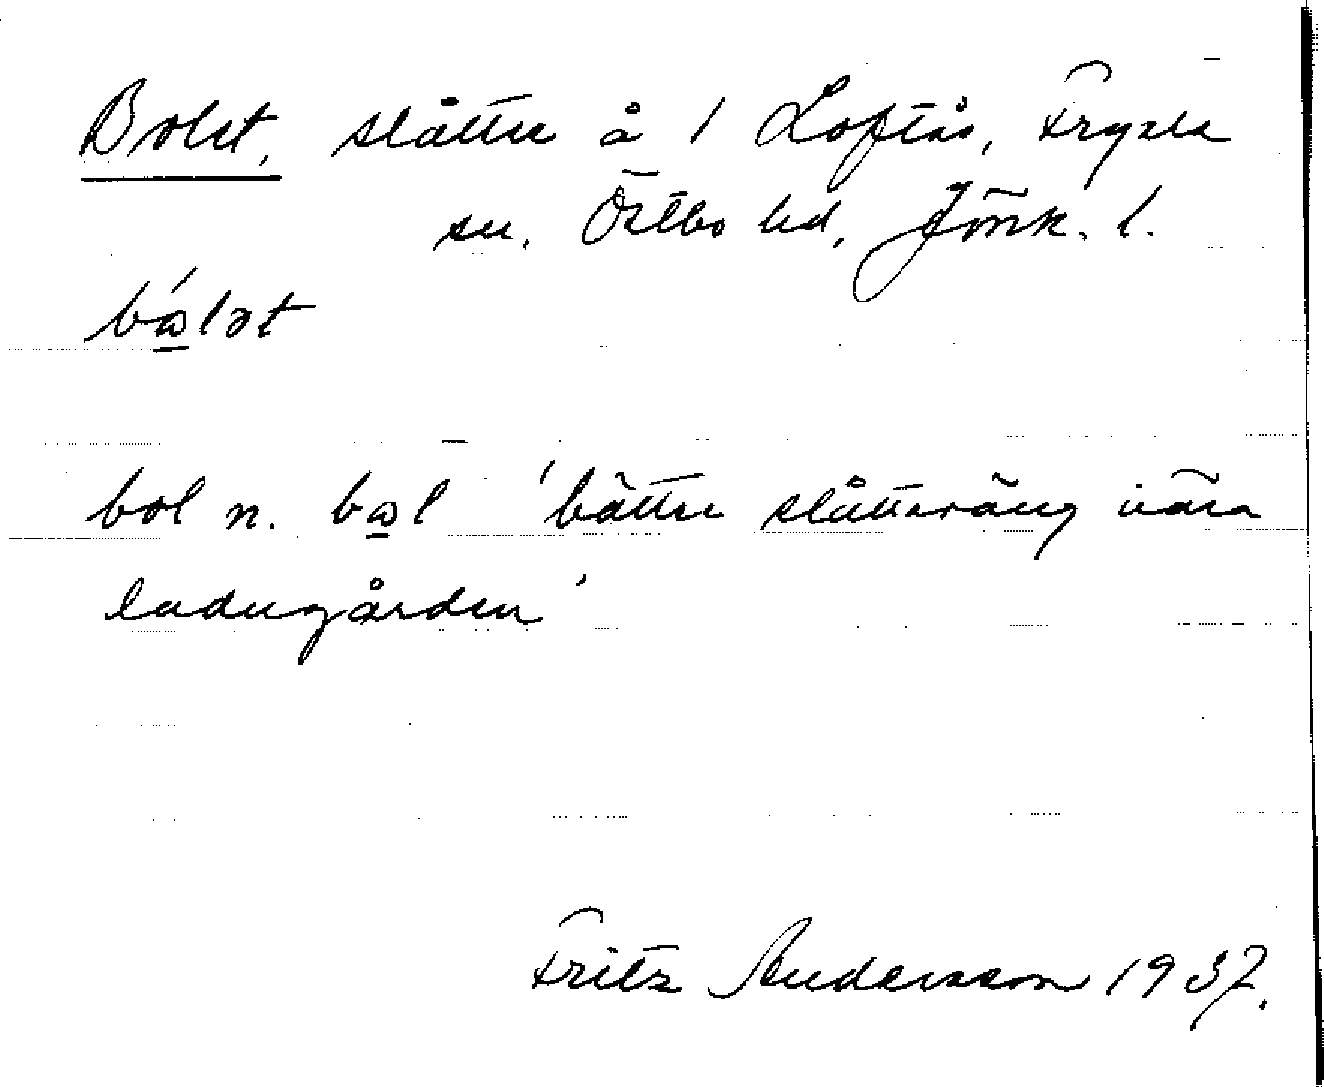 Bolet, slåtter å 1 Loftås, Fryele
sn. Östbo hd, Jönk. l.
bol n. 'bättre slåtteräng nära
ladugården'
Fritz Andersson 1937.